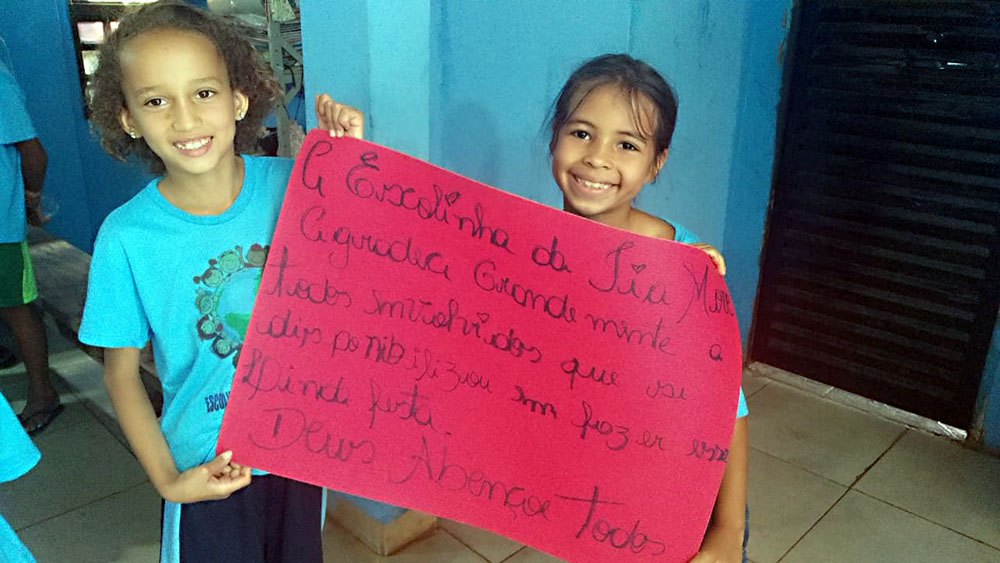 A Escolinha da Tia Meire
Agradece Grande mente a
todos envolvidos que se
disponibilizou em fazer essa
Linda festa.
Deus Abençoe todos
ESCOL